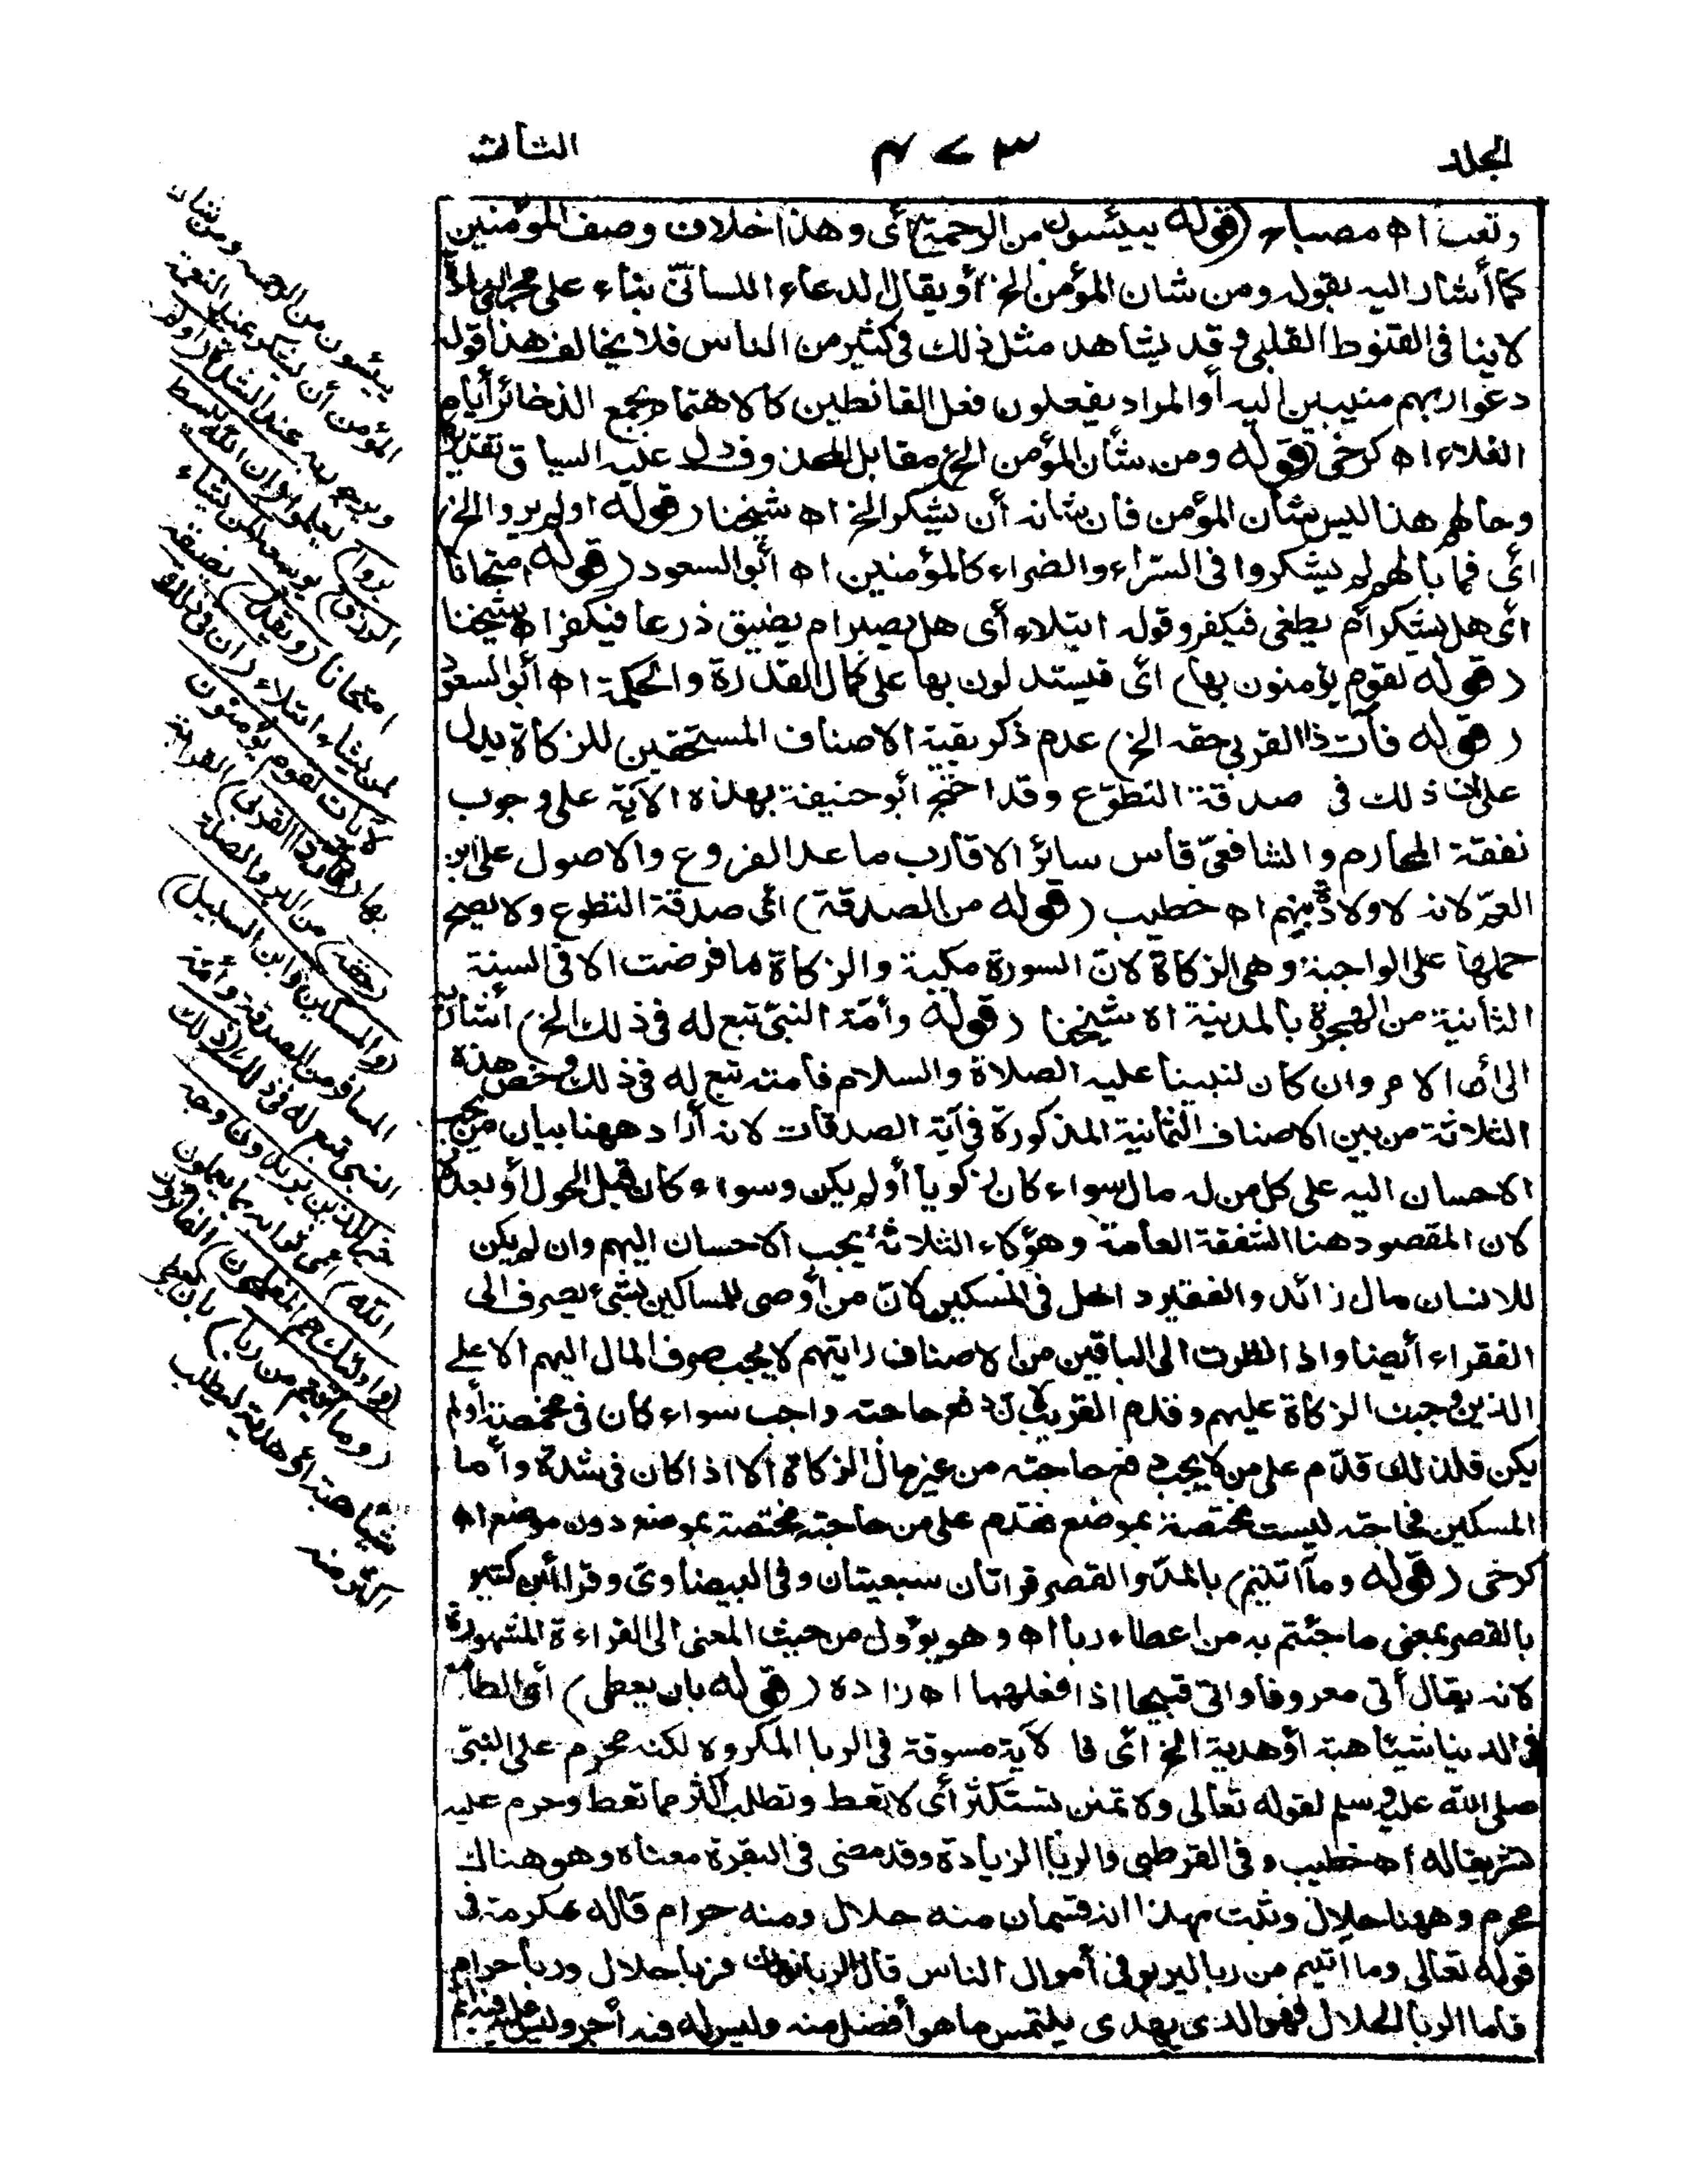 الجلد ٤٧٣ الثالث
وتعب اه مصباح (قوله ييئسون من الرحمة) أى وهذا خلاف وصف المؤمنين
كما أشار اليه بقوله ومن شان المؤمن الخ أو يقال الدعاء اللسانىّ بناء على مجرى العادة
لا ينافى القنوط القلبى وقد يشاهد مثل ذلك فى كثير من الناس فلا يخالف هذا قوله
دعوا ربهم منيبين اليه أو المراد يفعلون فعل القانطين كالاهتمام بجمع الذخائر أيام
الغلاء اه كرخى (قوله ومن شأن المؤمن الخ) مقابل لمحذوف دل عليه السياق تقديره
وحالهم هذا ليس شأن المؤمن فان شانه أن يشكر الخ اه شيخنا (قوله اولم يروا الخ)
اى فما بالهم لم يشكروا فى السرّاء والضراء كالمؤمنين اه أبو السعود (قوله امتحانا)
اى هل يشكر أم يطغى فيكفر وقوله ابتلاء أى هل يصبر ام يضيق ذرعا فيكفر اه شيخنا
(قوله لقوم يؤمنون بها) اى فيستدلون بها على كمال القدرة والحكمة اه أبو السعود
(قوله فآت ذا القربى حقه الخ) عدم ذكر بقية الاصناف المستحقين للزكاة يدل
على ان ذلك فى صدقة التطوّع وقد احتج أبو حنيفة بهذه الآية على وجوب
نفقة المحارم والشافعىّ قاس سائر الاقارب ما عدا الفروع والاصول على ابن
العمّ لانه لا ولادة بينهم اه خطيب (قوله من الصدقة) اى صدقة التطوع ولا يصح
حملها على الواجبة وهى الزكاة لانّ السورة مكية والزكاة ما فرضت الا فى السنة
الثانية من الهجرة بالمدينة اه شيخنا (قوله وأمّة النبىّ تبع له فى ذلك الخ) أشار به
الى أن الامر وان كان لنبينا عليه الصلاة والسلام فامته تبع له فى ذلك وخص هذه
الثلاثة من بين الاصناف الثمانية المذكورة فى آية الصدقات لانه أراد ههنا بيان من يجب
الاحسان اليه على كل من له مال سواء كان زكويا أو لم يكن وسواء كان قبل الحول أو بعده
لان المقصود هنا الشفقة العامة وهؤلاء الثلاثة يجب الاحسان اليهم وان لم يكن
للانسان مال زائد والفقير داخل فى المسكين لانّ من أوصى للمساكين بشئ يصرف الى
الفقراء أيضا واذا نظرت الى الباقين من الاصناف رايتهم لا يجب صرف المال اليهم الا على
الذين وجبت الزكاة عليهم وقدم القريب لان دفع حاجته واجب سواء كان فى مخمصة أو لم
يكن فلذلك قدّم على من لا يجب دفع حاجته من غير مال الزكاة الا اذا كان فى شدة وأما
المسكين فحاجته ليست مختصة بموضع فقدم على من حاجته مختصة بموضع دون موضع اه
كرخى (قوله وما آتيتم) بالمدّ والقصر قراتان سبعيتان وفى البيضاوى وقرأ ابن كثير
بالقصر بمعنى ما جئتم به من اعطاء ربا اه وهو يؤول من حيث المعنى الى القراءة المشهورة
لانه يقال أتى معروفا واتى قبيحا اذا فعلهما اه زاده (قوله بان يعطى) أى الطامع
فى الدنيا شيئا هبة أو هدية الخ اى فالآية مسوقة فى الربا المكروه لكنه محرم على النبىّ
صلى الله عليه وسلم لقوله تعالى ولا تمنن تستكثر أى لا تعط وتطلب أكثر مما تعط وحرم عليه
تشريفا له اه خطيب وفى القرطبى والربا الزيادة وقد مضى فى البقرة معناه وهو هناك
محرم وههنا حلال وثبت بهذا انه قسمان منه حلال ومنه حرام قاله عكرمة فى
قوله تعالى وما آتيتم من ربا ليربو فى أموال الناس قال الربا نوعان فربا حلال وربا حرام
فاما الربا الحلال فهو الذى يهدى يلتمس ما هو أفضل منه وليس له فيه أجر وليس عليه فيه اثم
ييئسون من الرحمة ومن شان
المؤمن أن يشكر عند النعمة
ويرجو ربه عند الشدة (أولم
يروا) يعلموا (ان الله يبسط
الرزق) يوسعه (لمن يشاء)
امتحانا (ويقدر) يضيقه
لمن يشاء ابتلاء (ان فى ذلك
لآيات لقوم يؤمنون)
بها (فآت ذا القربى) القرابة
(حقه) من البر والصلة
(والمسكين وابن السبيل)
المسافر من الصدقة وأمّة
النبى تبع له فى ذلك (ذلك
خير للذين يريدون وجه
الله) اى ثوابه بما يعملون
(وأولئك هم المفلحون) الفائزون
(وما آتيتم من ربا) بان يعطى
شيئا هبة أو هدية ليطلب
اكثر منه